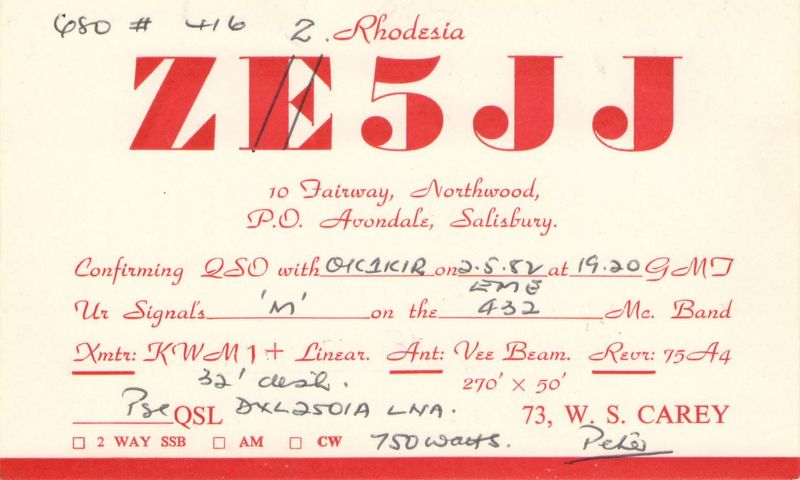 QSO # 416 Z. Rhodesia
ZE5JJ
10 Fairway, Northwood,
P.O. Avondale, Salisbury.
Confirming QSO with OK1KIR on 2.5.82 at 19.20 GMT
EME
Ur Signals 'M' on the 432 Mc. Band
Xmtr: KWM1 + Linear. Ant: Vee Beam. Revr: 75A4
32' dish. 270' × 50'
Pse QSL DXL2501A LNA. 73, W. S. CAREY
□ 2 WAY SSB □ AM □ CW 750 watts. Peter